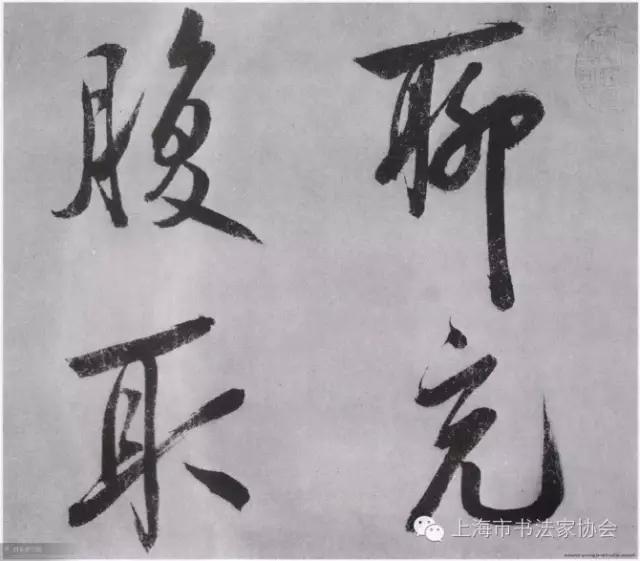 聊充
腹取
上海市书法家协会